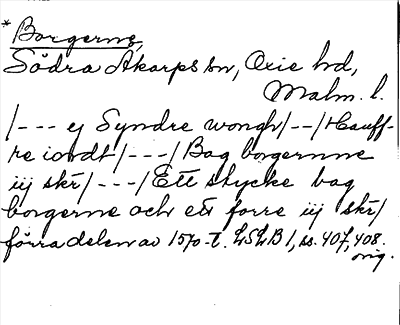 * Borgerne,
Södra Åkarps sn, Oxie hd,
Malm. l.
/--- ej Syndre wongh/--/Hauff-
re iordt/---/Bag borgernne
iij skr/---/Ett stycke bag
borgerne och ett forre iij skr/
förra delen av 1570-t. LSLB 1, ss. 407, 408.
orig.